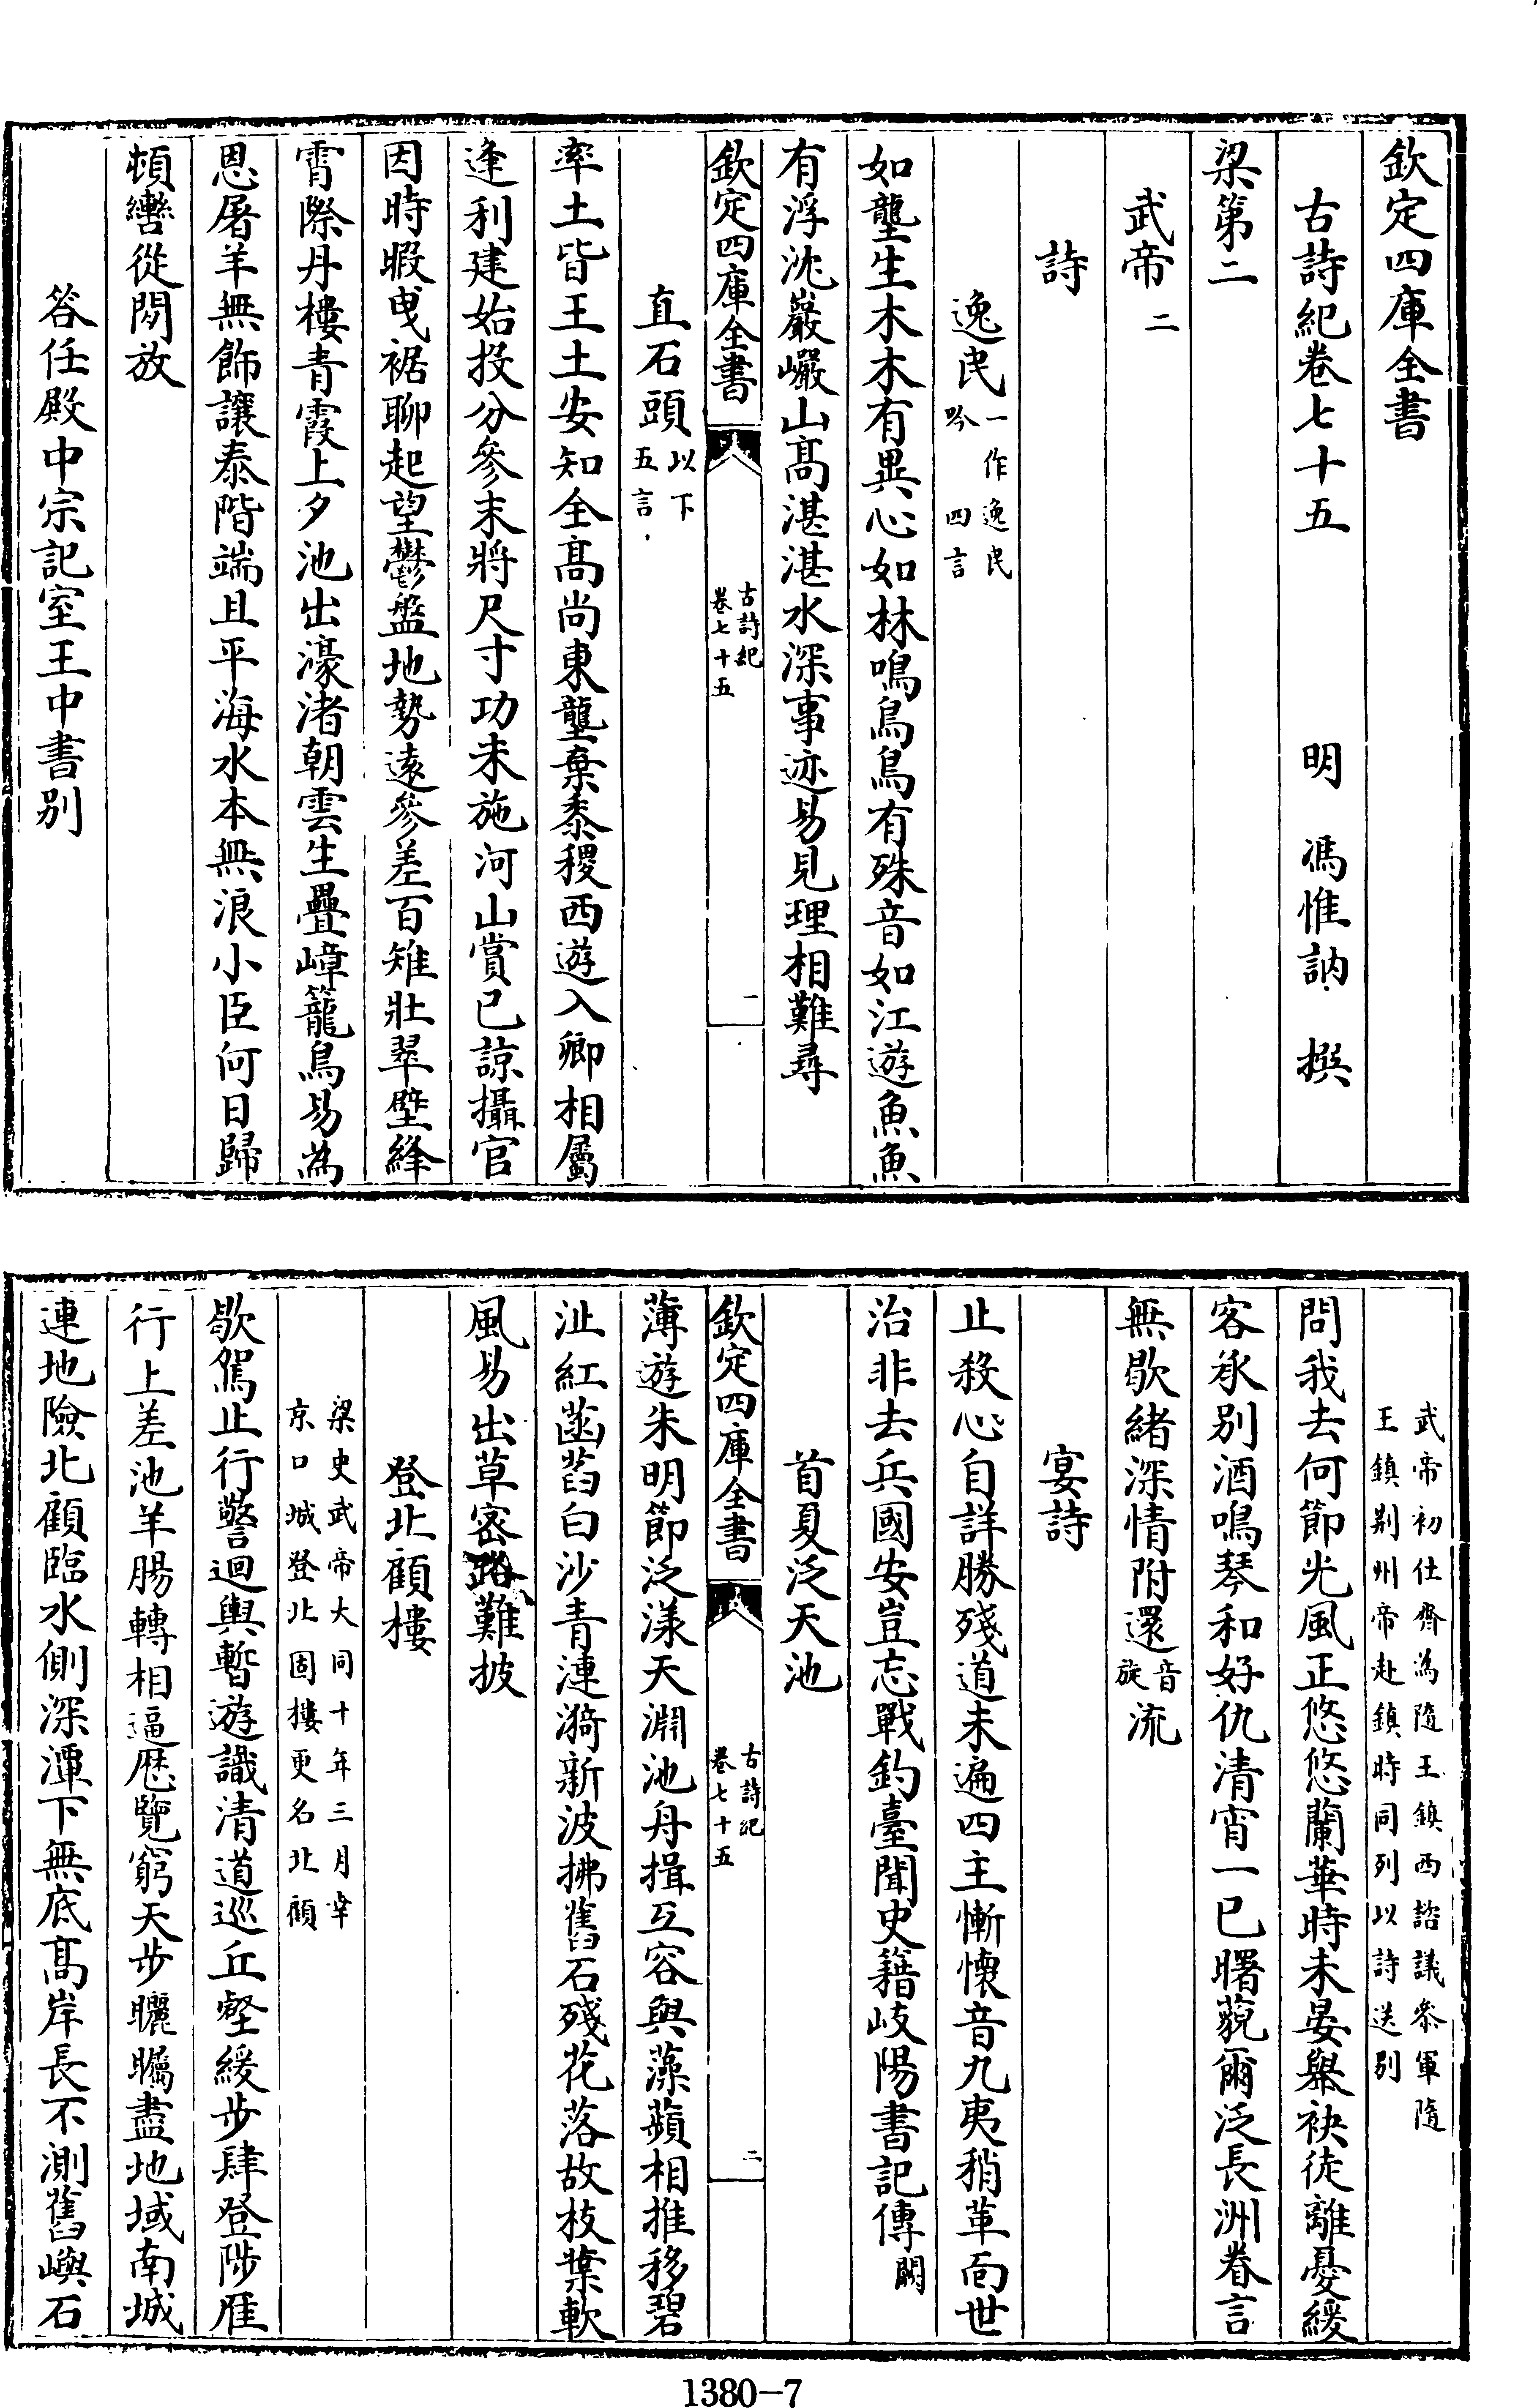 欽定四庫全書
古詩紀卷七十五　明　馮惟訥　撰
梁第二
武帝二
詩
逸民一作逸民吟　四言
如壟生木木有異心如林鳴鳥鳥有殊音如江遊魚魚
有浮沈巖巖山髙湛湛水深事迹易見理相難尋
欽定四庫全書　古詩紀卷七十五　一
直石頭以下五言
率土皆王土安知全髙尚東壟棄黍稷西遊入卿相屬
逢利建始投分參末將尺寸功未施河山賞已諒攝官
因時暇曵裾聊起望鬱盤地勢遠參差百雉壯翠壁絳
霄際丹樓青霞上夕池出濠渚朝雲生疊嶂籠鳥易為
恩屠羊無飾讓泰階端且平海水本無浪小臣何日歸
頓轡從閒放
答任殿中宗記室王中書别
武帝初仕齊為隨王鎮西諮議叅軍隨
王鎮荆州帝赴鎮時同列以詩送别
問我去何節光風正悠悠蘭華時未晏舉袂徒離憂緩
客承别酒鳴琴和好仇清宵一已曙藐爾泛長洲眷言
無歇緒深情附還音旋流
宴詩
止殺心自詳勝殘道未遍四主慚懷音九夷稍革面世
治非去兵國安豈忘戰釣臺聞史籍岐陽書記傳闕
首夏泛天池
欽定四庫全書　古詩紀卷七十五　二
薄遊朱明節泛漾天淵池舟揖互容與藻蘋相推移碧
沚紅菡萏白沙青漣漪新波拂舊石殘花落故枝葉軟
風易出草密路難披
登北顧樓
梁史武帝大同十年三月幸
京口城登北固樓更名北顧
歇駕止行警迴輿暫遊識清道巡丘壑緩步肆登陟雁
行上差池羊腸轉相逼歴覽窮天步矖矚盡地域南城
連地險北顧臨水側深潭下無底髙岸長不測舊嶼石
1380-7